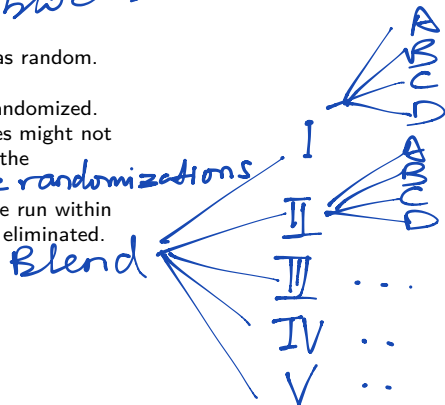 as random.
andomized.
es might not
the
randomizations
e run within
eliminated.
Blend
I
A
B
C
D
II
A
B
C
D
III ...
IV ..
V ..